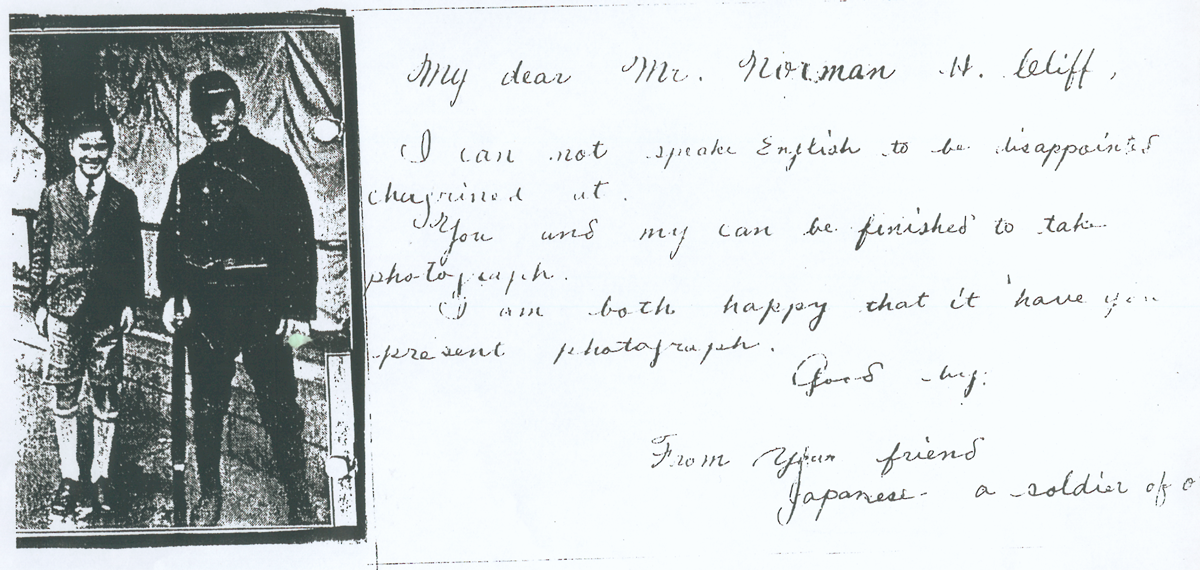 My dear Mr. Norman H. Cliff,
I can not speake English to be disappointed
chagrined at.
You and my can be finished to take
photograph.
I am both happy that it have you
present photograph.
Good by.
From your friend
Japanese a soldier of